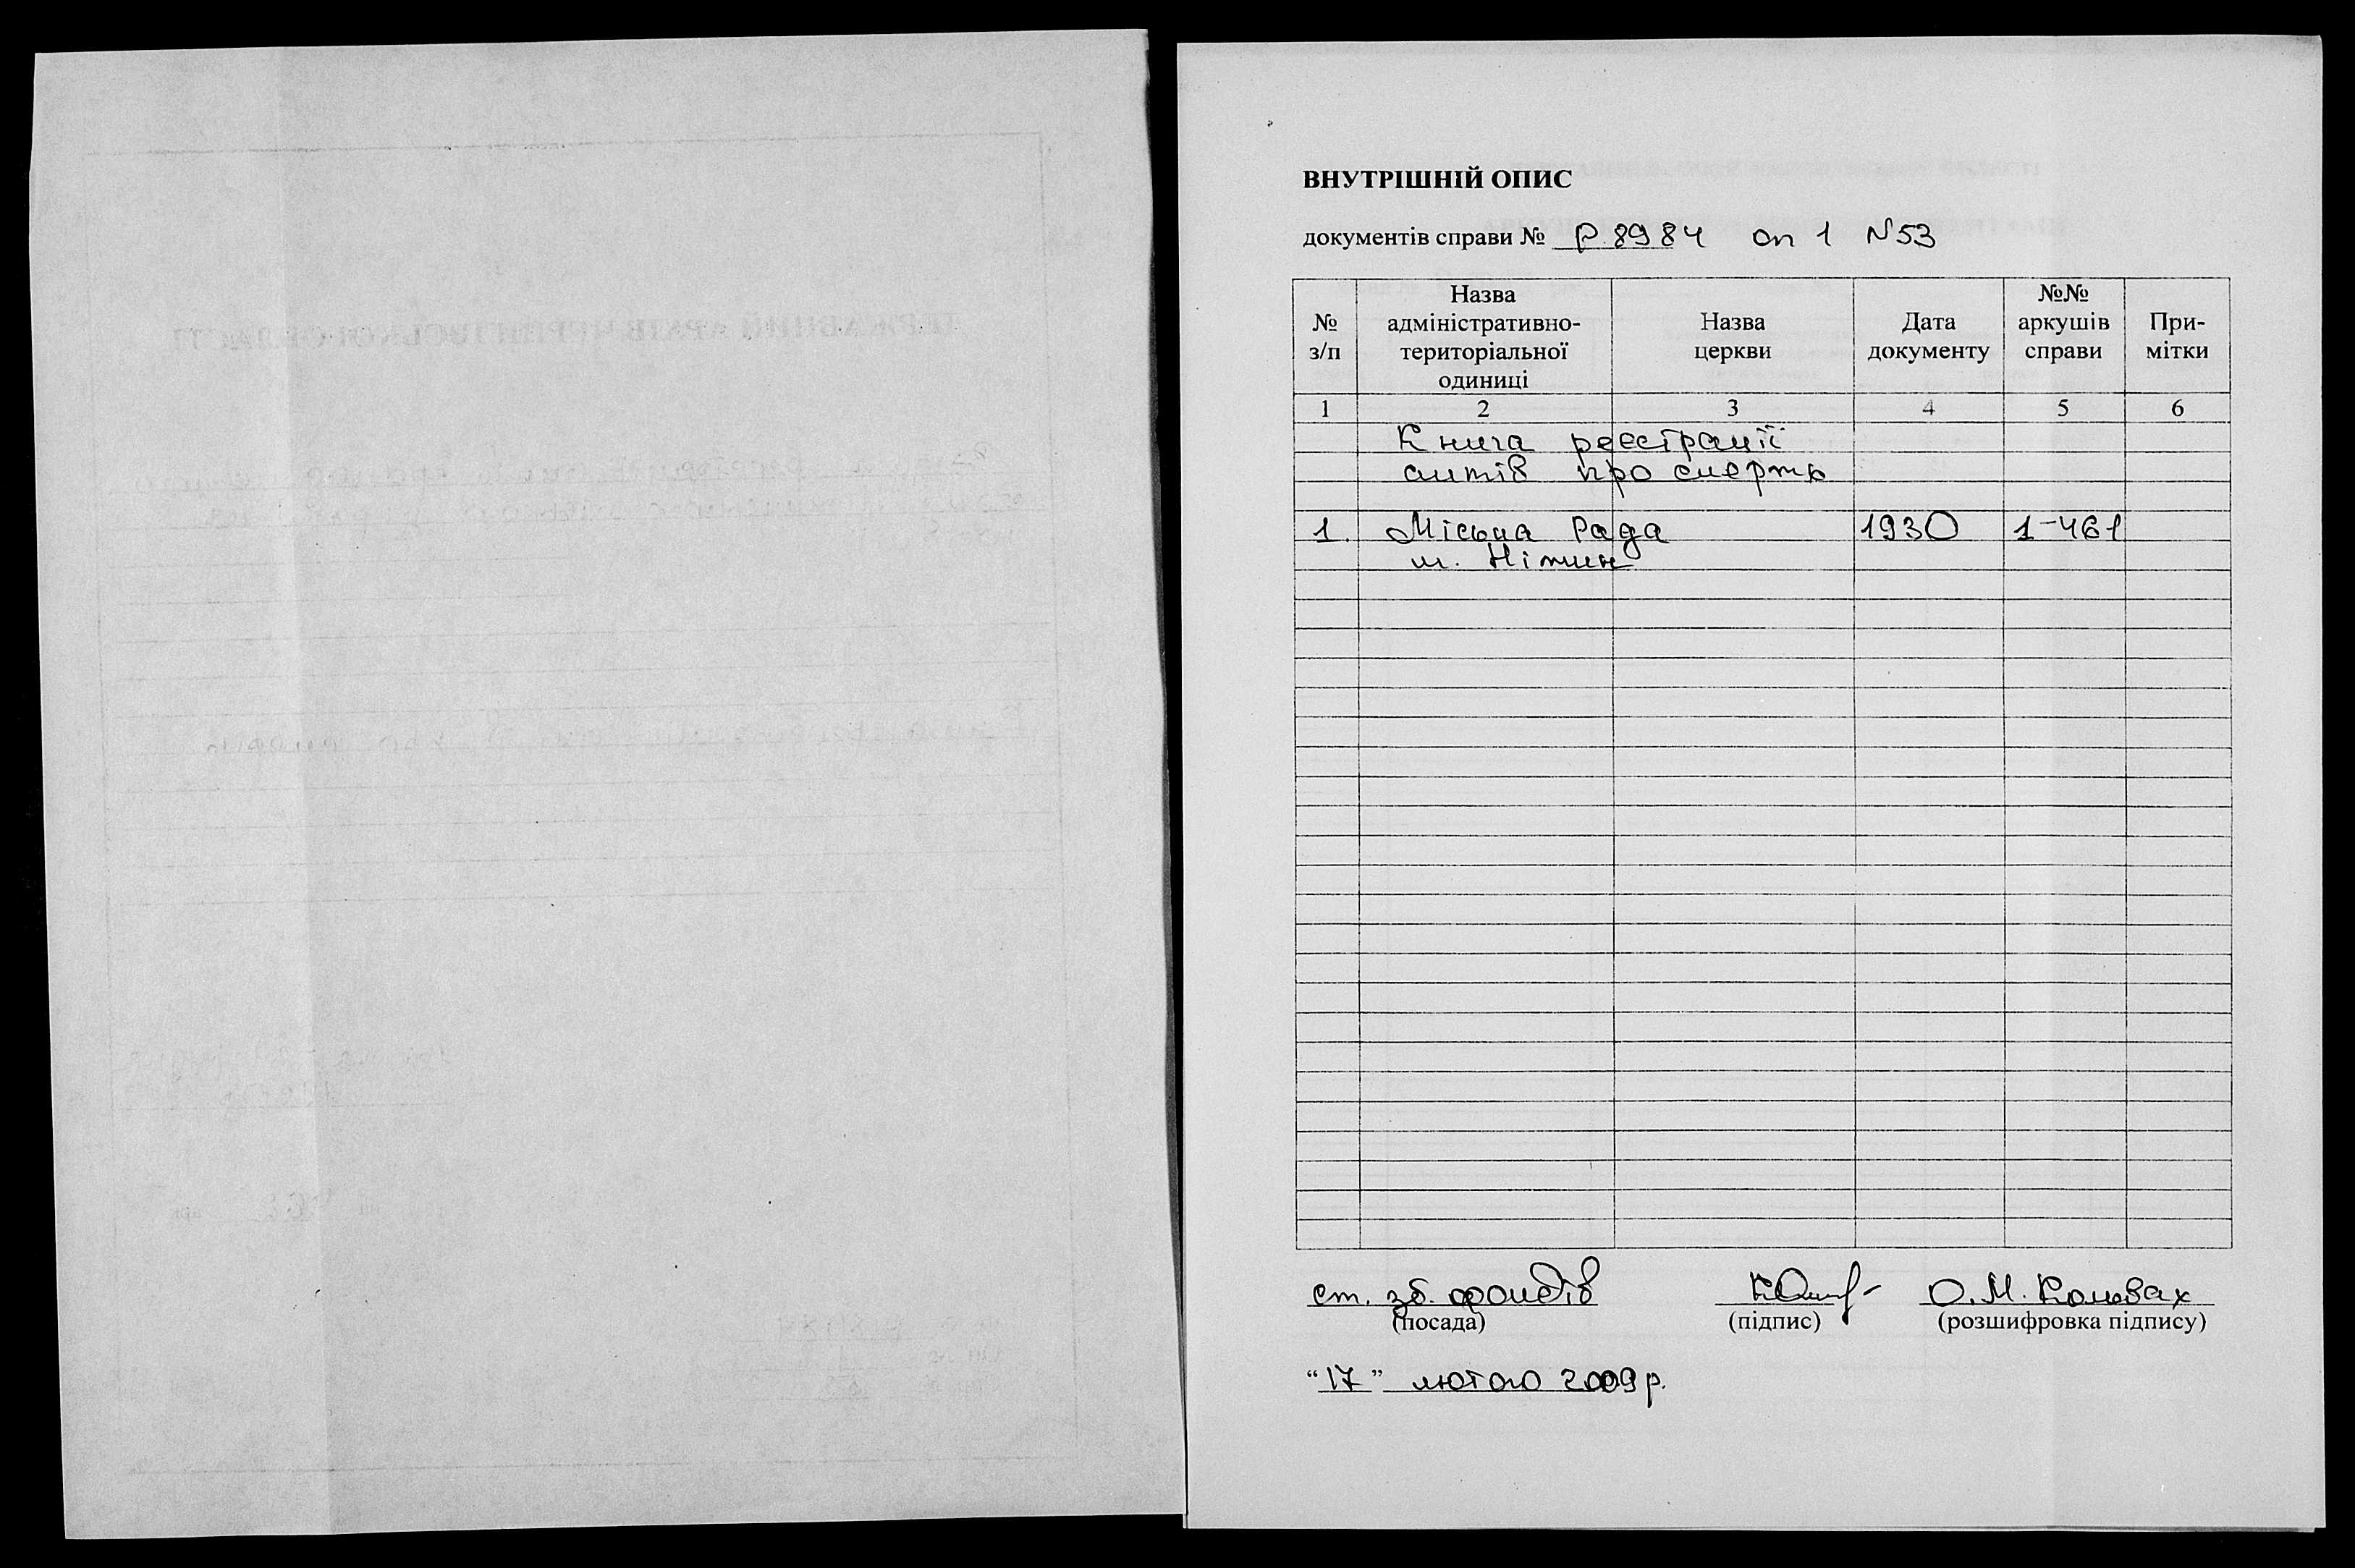 ВНУТРІШНІЙ ОПИС
документів справи № Р. 8984 оп 1 N 53
№ з/п
Назва адміністративно-територіальної одиниці
Назва церкви
Дата документу
№№ аркушів справи
При-мітки
1 2 3 4 5 6
Книга реєстрації
актів про смерть
1. Міська Рада 1930 1-461
м. Ніжин
ст. зб. фондів О.М.
(посада) (підпис) (розшифровка підпису)
“17” лютого 2009 р.